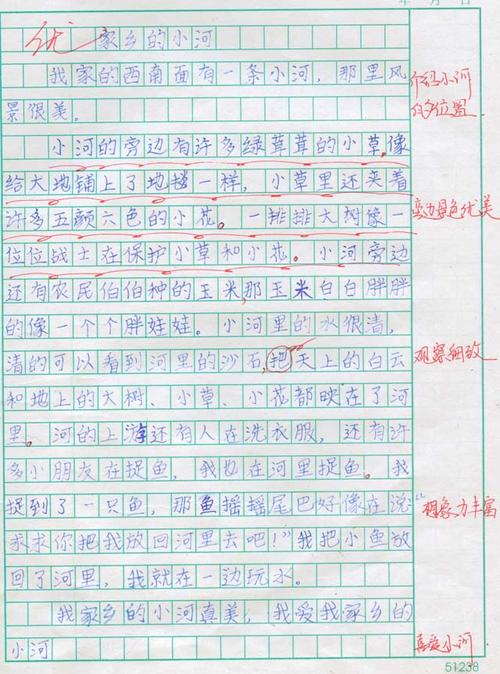 年 月 日
优 家乡的小河
我家的西南面有一条小河，那里风
介绍小河
景很美。
的位置
小河的旁边有许多绿草茸的小草，像
给大地铺上了地毯一样，小草里还夹着
许多五颜六色的小花。一排排大树像一
旁边景色优美
位位战士在保护小草和小花。小河旁边
还有农民伯伯种的玉米，那玉米白白胖胖
的像一个个胖娃娃。小河里的水很清，
清的可以看到河里的沙石，把天上的白云
观察细致
和地上的大树、小草、小花都映在了河
里。河的上游还有人在洗衣服，还有许
多小朋友在捉鱼，我也在河里捉鱼。我
捉到了一只鱼，那鱼摇摇尾巴好像在说“
想象力丰富
求求你把我放回河里去吧！”我把小鱼放
回了河里，我就在一边玩水。
我家乡的小河真美，我爱我家乡的
小河
喜爱小河
51238